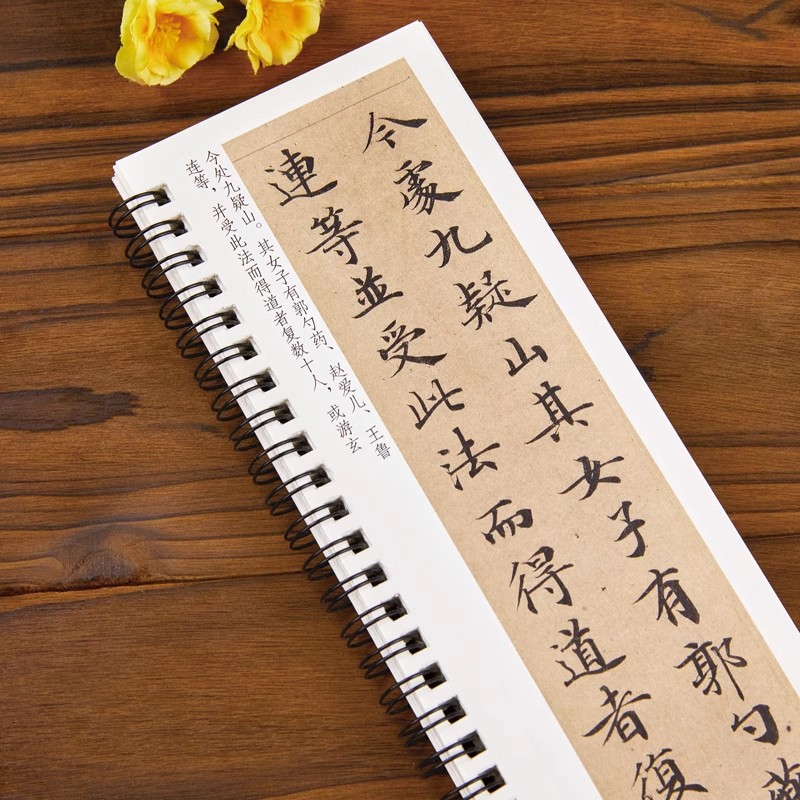 今處九疑山其女子有郭勺藥
連等並受此法而得道者復
今处九疑山。其女子有郭勺药、赵爱儿、王鲁
连等，并受此法而得道者复数十人，或游玄